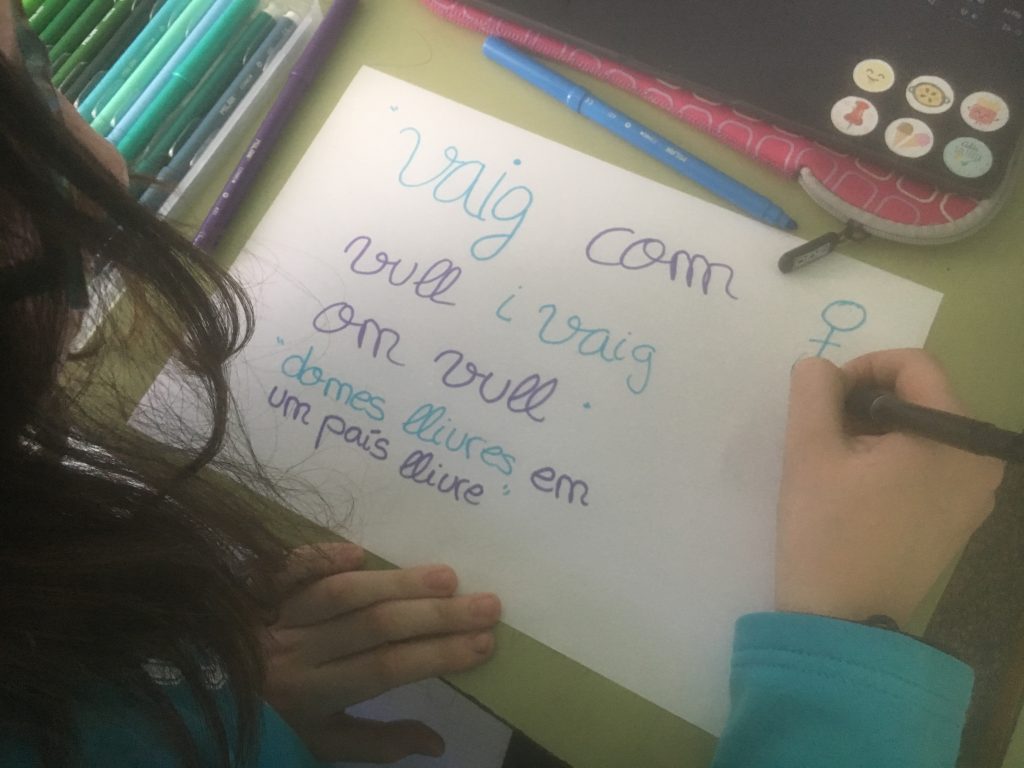 "Vaig com
vull i vaig
on vull"
"dones lliures en
un país lliure"